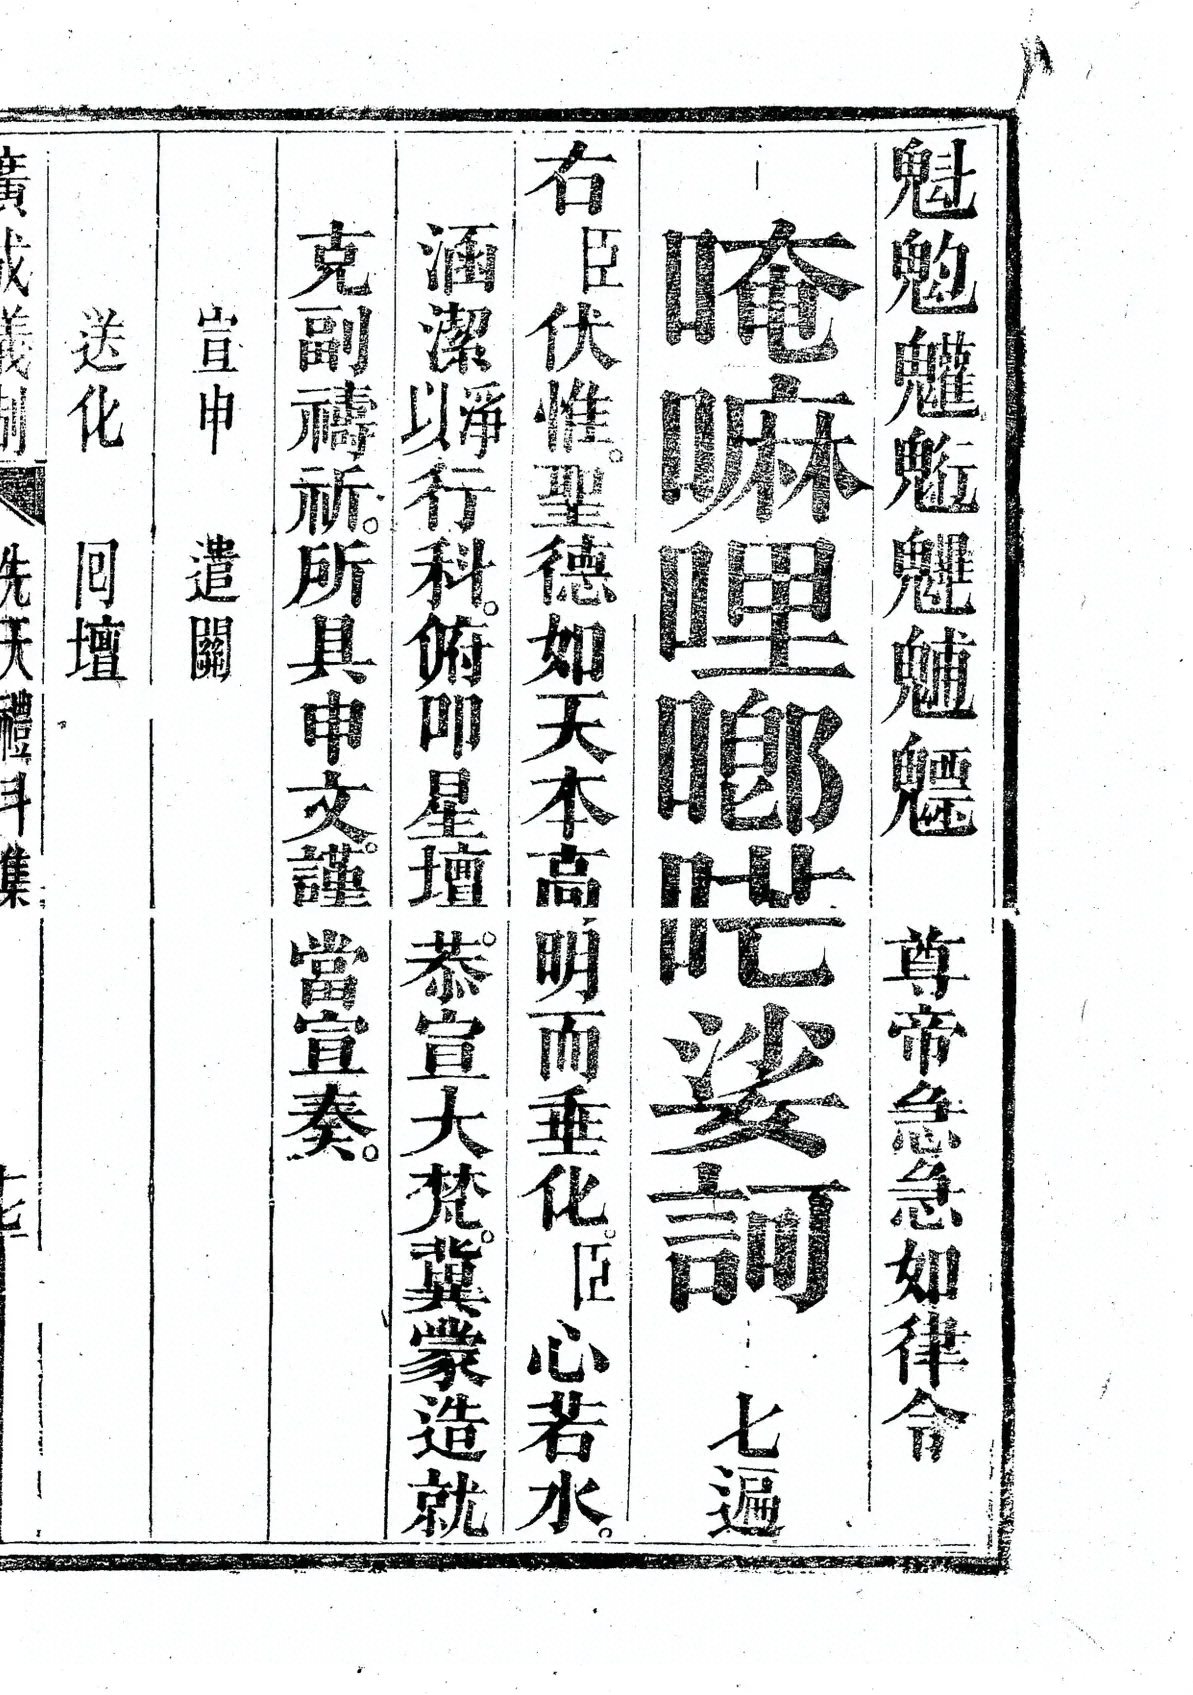 魁魓魒 尊帝急急如律令
唵嘛哩啷娑訶 七遍
右臣伏惟。聖德如天本高明而垂化。臣心若水。
涵潔以淨行科。俯叩星壇。恭宣大梵。冀蒙造就
克副禱祈。所具申文。謹當宣奏。
宣申 遣關
送化 囘壇
廣成儀制 先天禮斗集